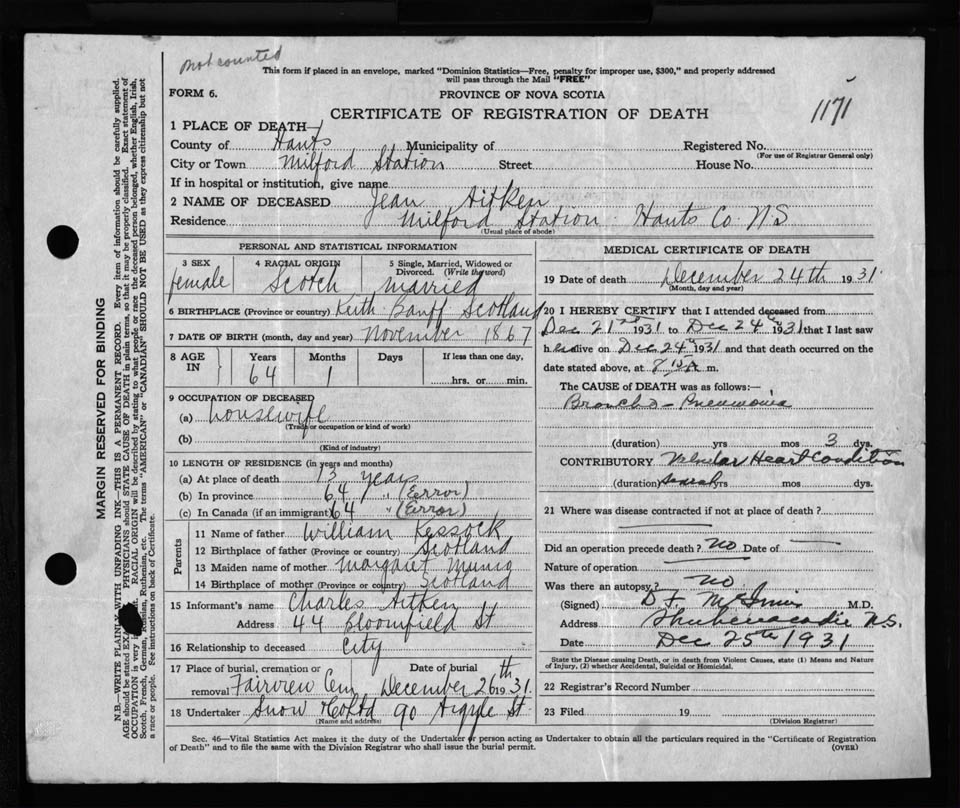 not counted
This form if placed in an envelope, marked "Dominion Statistics—Free, penalty for improper use, $300," and properly addressed
will pass through the Mail "FREE"
FORM 6.
PROVINCE OF NOVA SCOTIA
CERTIFICATE OF REGISTRATION OF DEATH
1171
1 PLACE OF DEATH—
County of Hants Municipality of Registered No.
(For use of Registrar General only)
City or Town Milford Station Street House No.
If in hospital or institution, give name
2 NAME OF DECEASED Jean Aitken
Residence Milford Station Hants Co. N S
(Usual place of abode)
MARGIN RESERVED FOR BINDING
N.B.—WRITE PLAINLY, WITH UNFADING INK—THIS IS A PERMANENT RECORD. Every item of information should be carefully supplied.
AGE should be stated PHYSICIANS should STATE CAUSE OF DEATH in plain terms, so that it may be properly classified. Exact statement of
OCCUPATION is very RACIAL ORIGIN will be described by stating to what people or race the deceased person belonged, whether English, Irish,
Scotch, French, German, Russian, Ruthenian, etc. The terms "AMERICAN" or "CANADIAN" SHOULD NOT BE USED as they express citizenship but not
a race or people. See instructions on back of Certificate.
PERSONAL AND STATISTICAL INFORMATION
3 SEX 4 RACIAL ORIGIN 5 Single, Married, Widowed or
Divorced. (Write the word)
female Scotch married
6 BIRTHPLACE (Province or country) Keith Banff Scotland
7 DATE OF BIRTH (month, day and year) November 1867
8 AGE IN Years Months Days If less than one day,
64 1 hrs. or min.
9 OCCUPATION OF DECEASED
(a) housewife
(Trade or occupation or kind of work)
(b)
(Kind of industry)
10 LENGTH OF RESIDENCE (in years and months)
(a) At place of death 13 years
(b) In province 64 " (Error)
(c) In Canada (if an immigrant) 64 " (Error)
Parents
11 Name of father William Kessock
12 Birthplace of father (Province or country) Scotland
13 Maiden name of mother Margaret
14 Birthplace of mother (Province or country) Scotland
15 Informant's name Charles Aitken
Address 44 Bloomfield St
16 Relationship to deceased City
17 Place of burial, cremation or Date of burial
removal Fairview Cem December 26th 1931.
18 Undertaker Snow & Co Ltd 90 Argyle St.
(Name and address)
MEDICAL CERTIFICATE OF DEATH
19 Date of death December 24th 1931.
(Month, day and year)
20 I HEREBY CERTIFY that I attended deceased from
Dec 21st 1931 to Dec 24th 1931 that I last saw
h er alive on Dec 24th 1931 and that death occurred on the
date stated above, at m.
The CAUSE of DEATH was as follows:—
Broncho-Pneumonia
(duration) yrs mos 3 dys.
CONTRIBUTORY Valvular Heart Condition
(duration) Several yrs mos dys.
21 Where was disease contracted if not at place of death?
Did an operation precede death? no Date of
Nature of operation
Was there an autopsy? no
(Signed) D F McInnis M.D.
Address Shubenacadie N.S.
Date Dec 25th 1931
State the Disease causing Death, or in death from Violent Causes, state (1) Means and Nature
of Injury, (2) whether Accidental, Suicidal or Homicidal.
22 Registrar's Record Number
23 Filed 19
(Division Registrar)
Sec. 46—Vital Statistics Act makes it the duty of the Undertaker or person acting as Undertaker to obtain all the particulars required in the "Certificate of Registration
of Death" and to file the same with the Division Registrar who shall issue the burial permit.
(OVER)